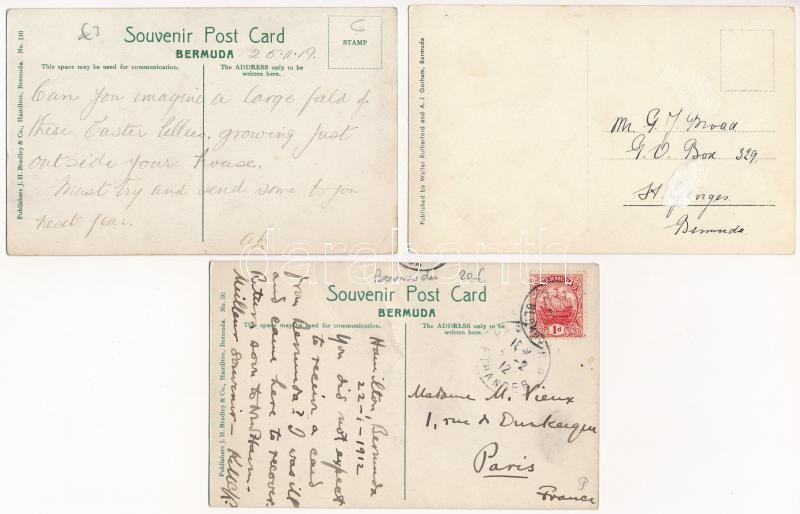 Souvenir Post Card
BERMUDA
STAMP
25·11·19.
This space may be used for communication.
The ADDRESS only to be
written here.
Publishers J. H. Bradley & Co., Hamilton, Bermuda. No. 116
Can you imagine a large field of
these Easter Lillies, growing just
outside your house.
Must try and send some to you
next year.
Published by Walter Rutherford and A. J. Gorham, Bermuda
Mr. G. J.
G. O. Box 329,
St. Georges
Bermuda
Souvenir Post Card
BERMUDA
This space may be used for communication.
The ADDRESS only to be
written here.
Publishers J. H. Bradley & Co., Hamilton, Bermuda. No. 50
Hamilton, Bermuda
22-1-1912
You did not expect
to receive a card
from Bermuda? I was ill
and came here to recover.
Return soon to New Haven -
Meilleur Souvenir -
1d
Madame M. Vieux
1, rue de Dunkerque
Paris
France
darabanth